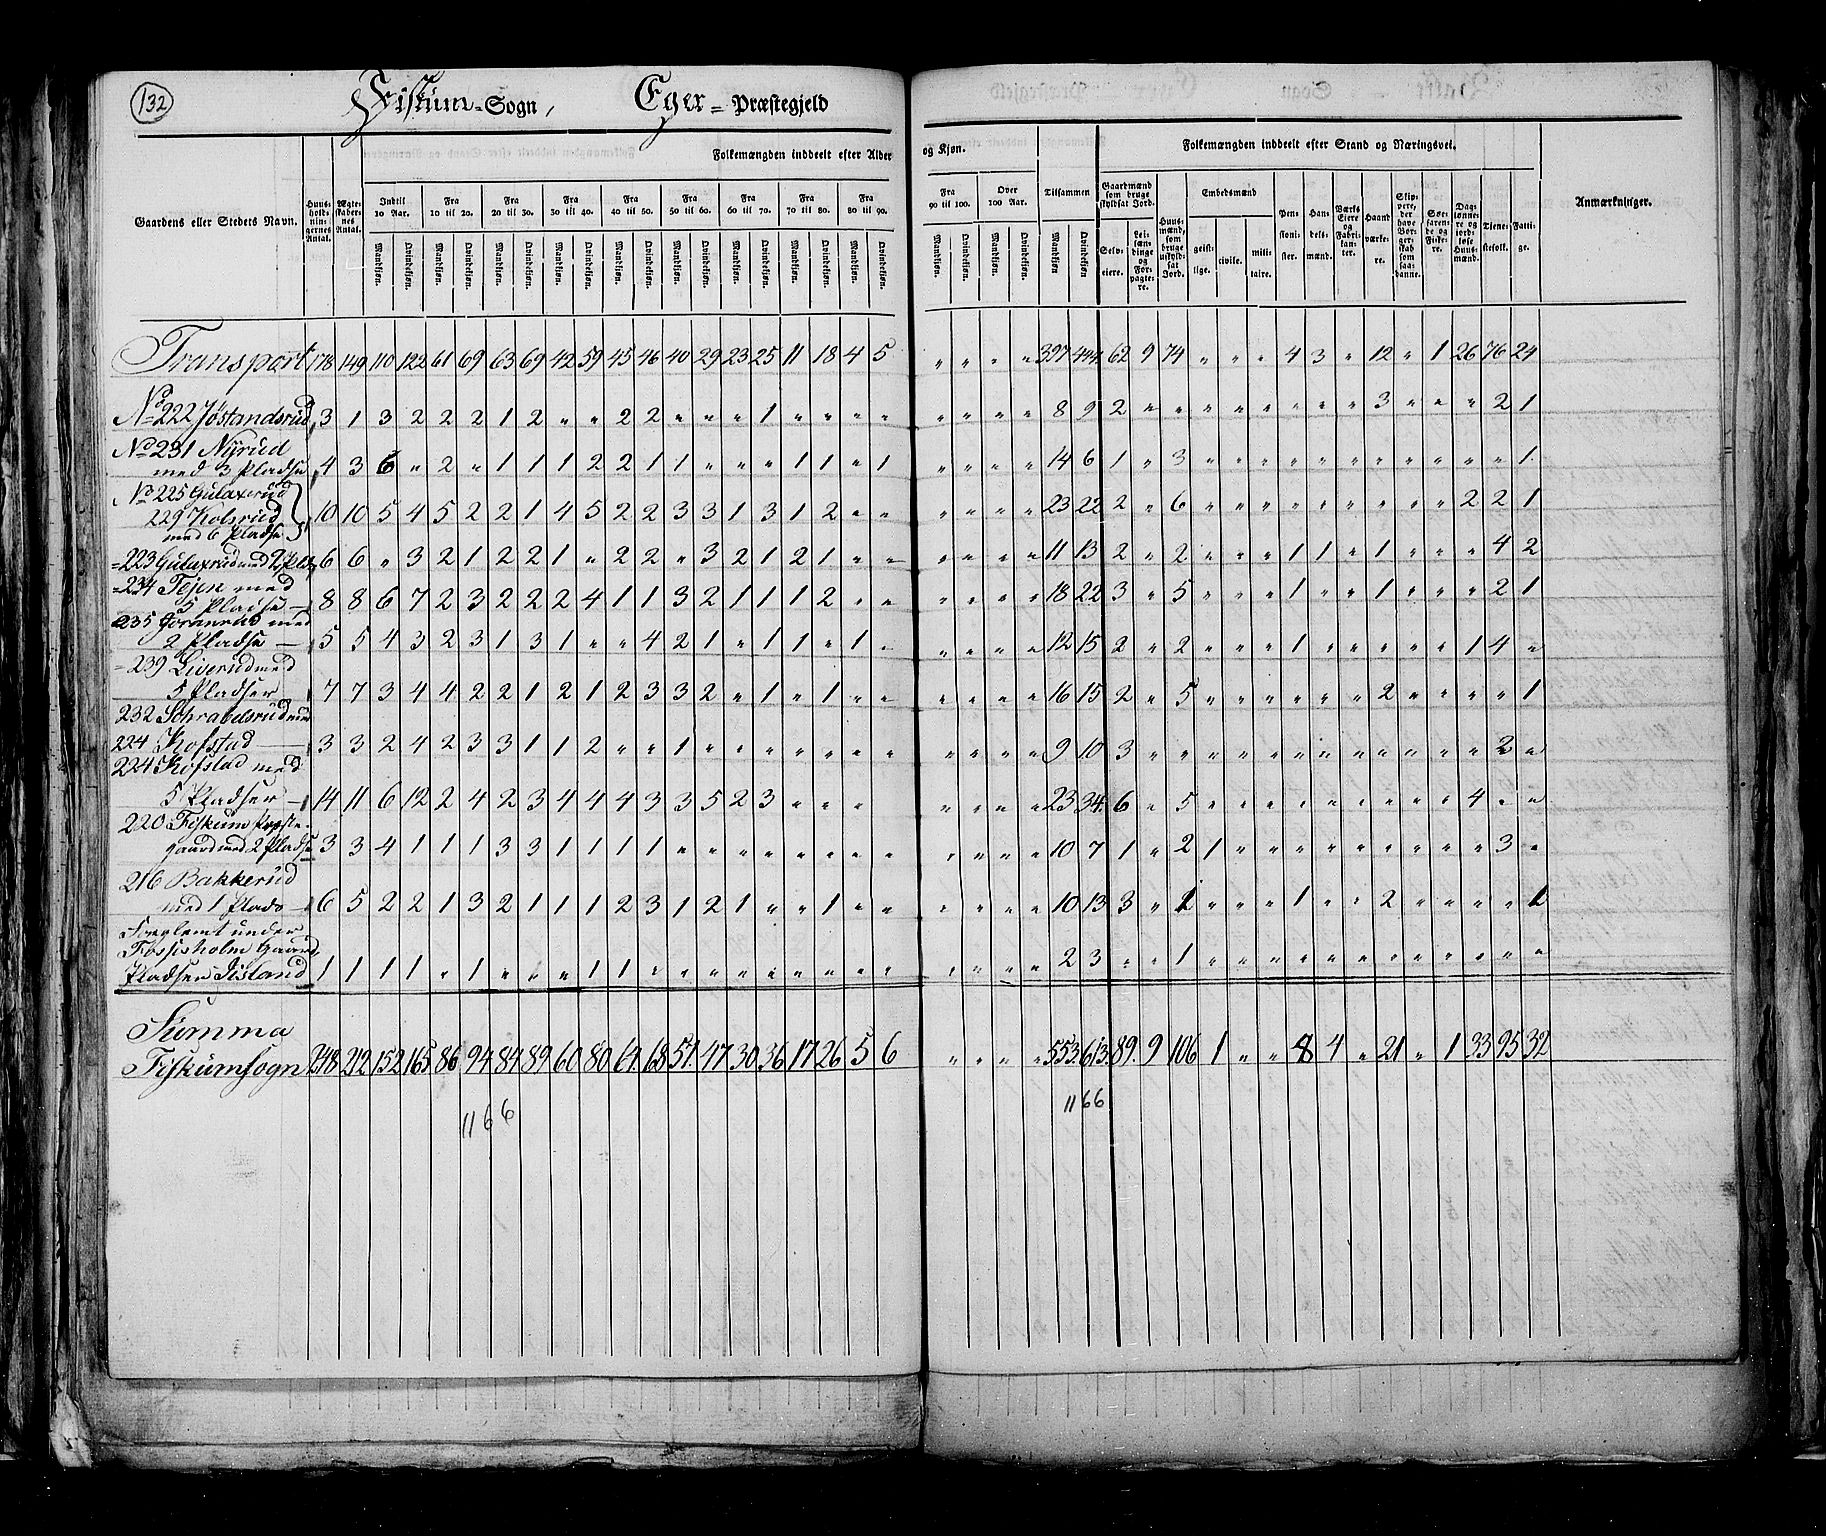 132
Fiskum-Sogn, Eger-Præstegjeld
Folkemængden inddeelt efter Alder og Kjøn.
Folkemængden inddeelt efter Stand og Næringsvei.
Gaardens eller Stedets Navn.
Huusholdningernes Antal.
Ægteskabernes Antal.
Indtil 10 Aar.
Fra 10 til 20.
Fra 20 til 30.
Fra 30 til 40.
Fra 40 til 50.
Fra 50 til 60.
Fra 60 til 70.
Fra 70 til 80.
Fra 80 til 90.
Fra 90 til 100.
Over 100 Aar.
Tilsammen
Mandkjøn. Qvindekjøn.
Gaardmænd som bruge skyldsat Jord.
Selveiere. Leilændinge og Forpagtere.
Huusmænd, som bruge uskyldsat Jord.
Embedsmænd
geistlige. civile. militaire.
Pensionister.
Handelsmænd.
Værks Eiere og Fabrikanter.
Haandværkere.
Skippere, der have Borgerskab som saadanne.
Søefarende og Fiskere.
Daglønnere og jordløse Huusmænd.
Tjenestefolk.
Fattige.
Anmærkninger.
Transport 178 149 110 122 61 69 63 69 42 59 45 46 40 29 23 25 11 18 4 5 " " " " 397 444. 62 9 74 " " " 4 3 " 12 " 1 26 76 24
No 222 Jøstandsrud 3 1 3 2 2 2 1 2 " " 2 2 " " " 1 " " " " " " " " 8 9 2 " " " " " " " " 3 " " " 2 1
No 231 Nyrud
med 3 Pladse 4 3 6 " 2 " 1 1 1 2 2 1 1 " " " 1 1 " 1 " " " " 14 6 1 " 3 " " " " " " " " " " " 1
No 225 Gulaxerud
229 Kolsrud
med 6 Pladse 10 10 5 4 5 2 2 1 4 5 2 2 3 3 1 3 1 2 " " " " " " 23 22 2 " 6 " " " " " " " " " 2 2 1
=223 Gulaxrud med 2 Pla 6 6 " 3 2 1 2 2 1 " 2 2 " 3 2 1 2 1 " " " " " " 11 13 2 " 2 " " " 1 1 " 1 " " " 4 2
=234 Tejen med
5 Pladse 8 8 6 7 2 3 2 2 2 4 1 1 3 2 1 1 1 2 " " " " " " 18 22 3 " 5 " " " 1 " " 1 " " " 2 1
235 med
2 Pladse 5 5 4 3 2 3 1 3 1 " " 4 2 1 " 1 1 " 1 " " " " " 12 15 2 " 2 " " " 1 " " " " " 1 4 "
=239 Liverud med
5 Pladser 7 7 3 4 4 2 2 1 2 1 2 3 3 2 " 1 " 1 " " " " " " 16 15 2 " 5 " " " " " " 2 " " " " 1
232 Schrabelsrud med
224 Kofstad 3 3 2 4 2 3 3 1 1 2 " " 1 " " " " " " " " " " " 9 10 3 " " " " " " " " " " " " 2 "
224 Kofstad med
5 Pladser 14 11 6 12 2 4 2 3 4 4 4 3 3 5 2 3 " " " " " " " " 23 34. 6 " 5 " " " " " " " " " 4 " "
220 Fiskum Præste-
gaard med 2 Pladse 3 3 4 1 1 1 3 3 1 1 1 1 " " " " " " " " " " " " 10 7 1 " 2 1 " " " " " " " " " 3 "
216 Bakkerud
med 1 Plads 6 5 2 2 1 3 2 1 1 1 2 3 1 2 1 " " 1 " " " " " " 10 13 3 " 1 " " " 1 " " 2 " " " " 1
Forglemt under
Fossisholm Gaard,
Pladsen Island 1 1 1 1 " 1 " " " 1 1 " " " " " " " " " " " " 2 3 " " 1 " " " " " " " " " " " "
Summa
Fiskum sogn 248 212 152 165 86 94 84 89 60 80 61 68 57 47 30 36 17 26 5 6 " " " " 553. 613. 89. 9 106 1 " " 8 4 " 21 " 1 33 95 32
1166 1166